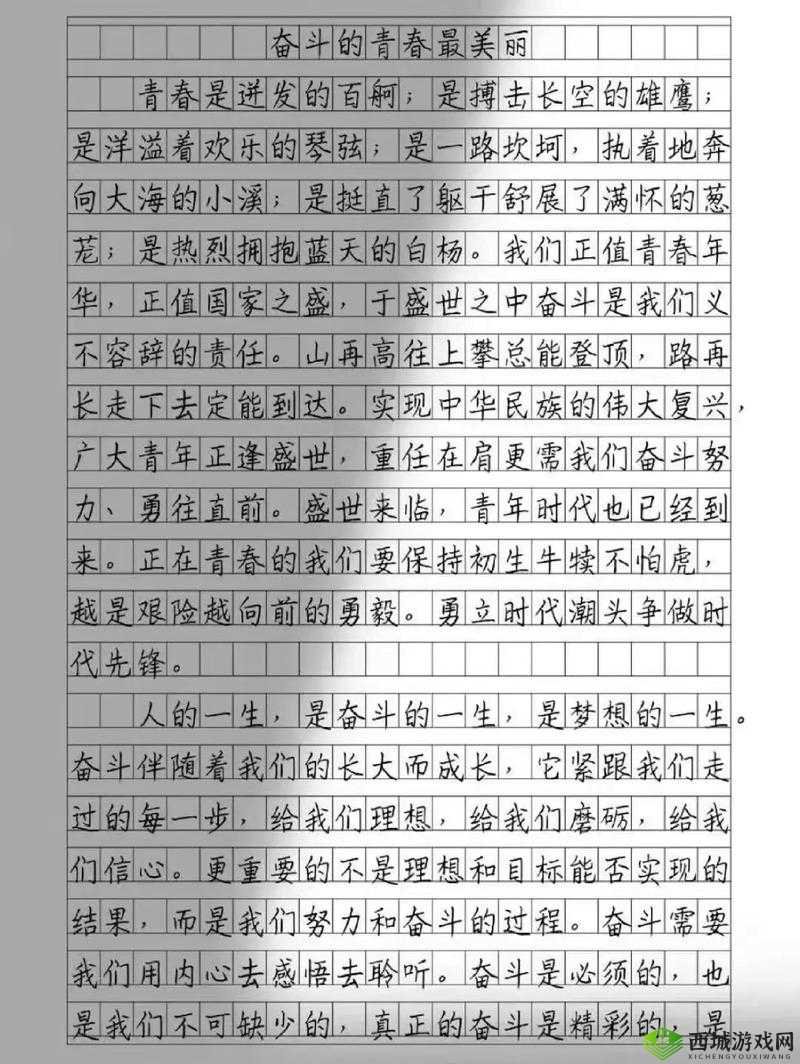 奋斗的青春最美丽
青春是迸发的百舸；是搏击长空的雄鹰；
是洋溢着欢乐的琴弦；是一路坎坷，执着地奔
向大海的小溪；是挺直了躯干舒展了满怀的葱
茏；是热烈拥抱蓝天的白杨。我们正值青春年
华，正值国家之盛，于盛世之中奋斗是我们义
不容辞的责任。山再高往上攀总能登顶，路再
长走下去定能到达。实现中华民族的伟大复兴，
广大青年正逢盛世，重任在肩更需我们奋斗努
力、勇往直前。盛世来临，青年时代也已经到
来。正在青春的我们要保持初生牛犊不怕虎，
越是艰险越向前的勇毅。勇立时代潮头争做时
代先锋。
人的一生，是奋斗的一生，是梦想的一生。
奋斗伴随着我们的长大而成长，它紧跟我们走
过的每一步，给我们理想，给我们磨砺，给我
们信心。更重要的不是理想和目标能否实现的
结果，而是我们努力和奋斗的过程。奋斗需要
我们用内心去感悟去聆听。奋斗是必须的，也
是我们不可缺少的，真正的奋斗是精彩的，是
西城游戏网
XICHENGYOUXIWANG